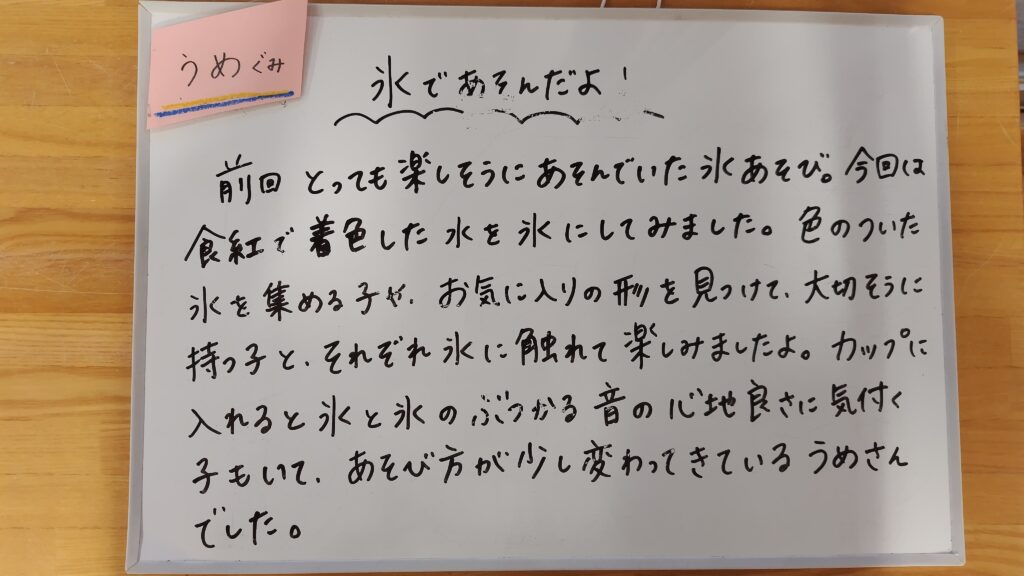 うめぐみ
氷であそんだよ!
前回 とっても楽しそうにあそんでいた氷あそび。今回は
食紅で着色した水を氷にしてみました。色のついた
氷を集める子や、お気に入りの形を見つけて、大切そうに
持つ子と、それぞれ氷に触れて楽しみましたよ。カップに
入れると氷と氷のぶつかる音の心地良さに気付く
子もいて、あそび方が少し変わってきているうめさん
でした。